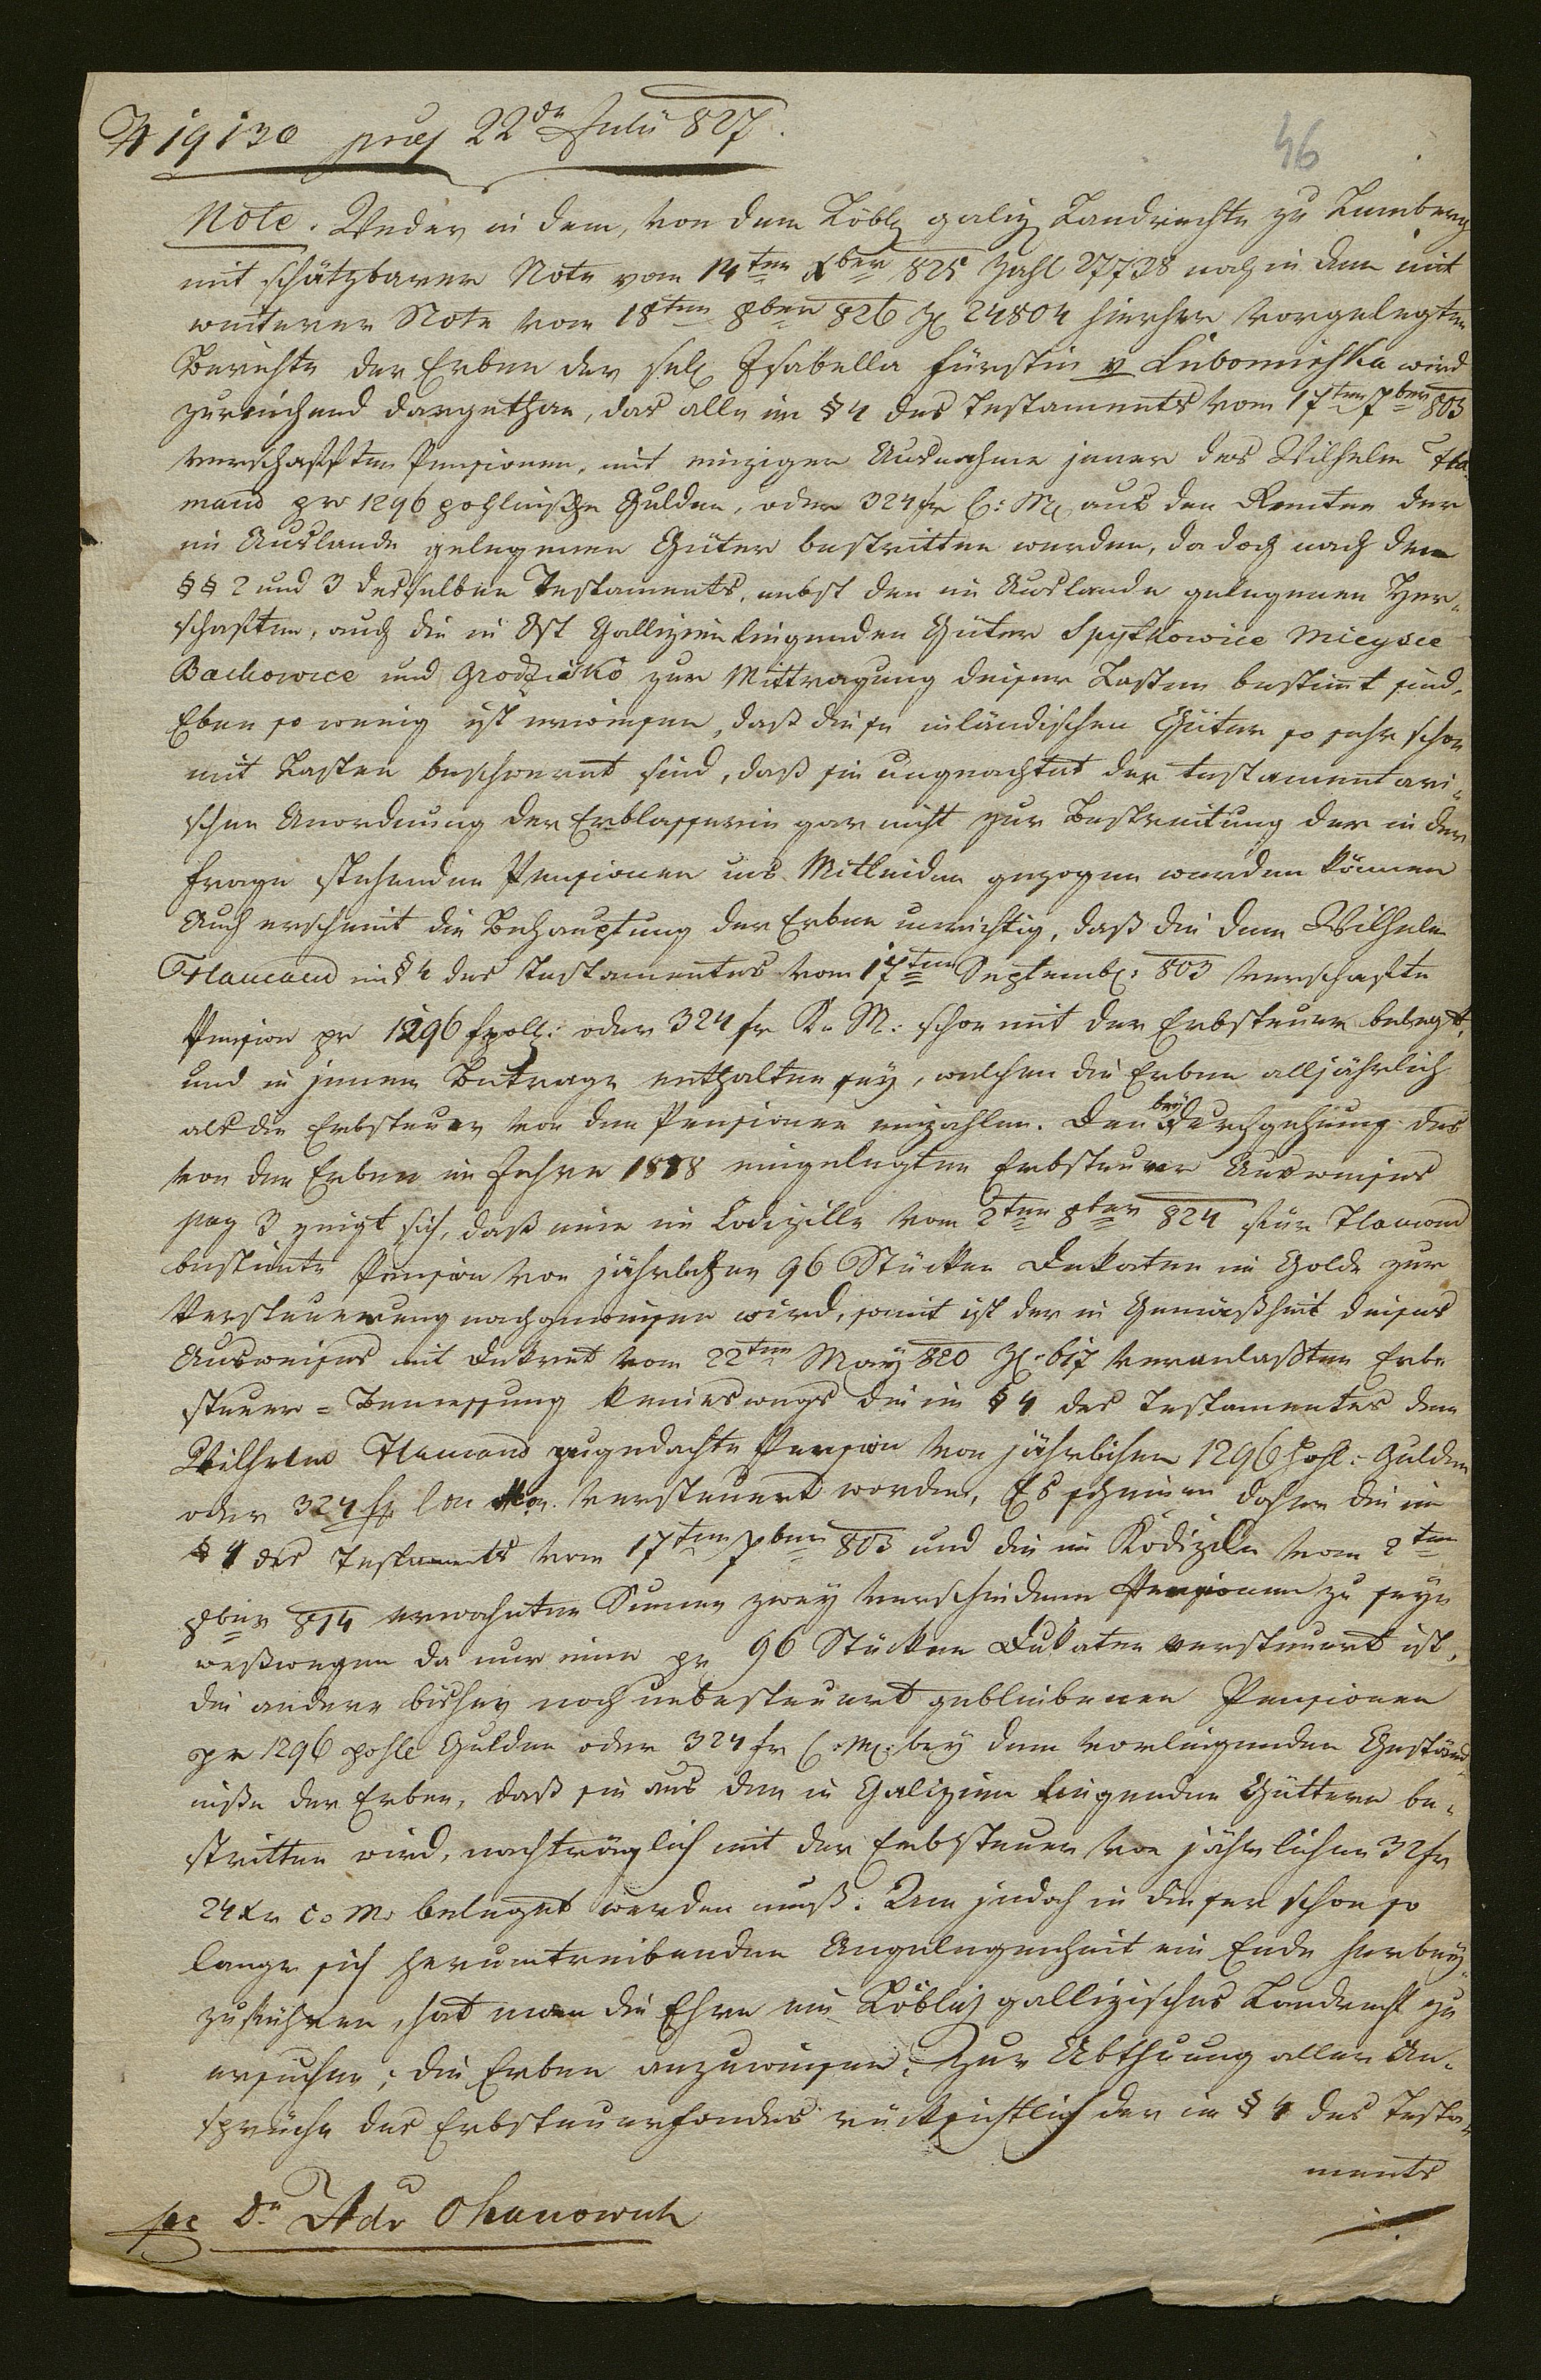 19130 praes 22ten Julii 827.
46
Note. Weder in dem, von dem Löbl galiz Landrechte zu Lemberg
mit schätzbarer Note vom 14ten Xber 825 Zahl 27728 noch in dem mit
weiterer Note vom 18ten 8ber 826 Z 24804 hierher vorgelegten
Berichte der Erben der sel Isabella Fürstin v Lubomirska wird
zureichend dargethan, das alle im § 4 des Testaments vom 17ten 7ber 803
verschafften Pensionen, mit einziger Ausnahme jener des Wilhelm Fla-
mand pro 1296 pohlnische Gulden, oder 324 fr C: M aus den Renten der
im Auslande gelegenen Güter bestritten werden, da doch nach dem
§§ 2 und 3 desselben Testaments, nebst den im Auslande gelegenen Her-
schaften, auch die in Ost Gallizien liegenden Güter Spytkowice Mieysce
Bachowice und Grodzisko zur Mittragung dieser Lasten bestimt sind.
Eben so wenig ist erwiesen, daß diese inländischen Güter so sehr schon
mit Lasten beschwert sind, daß sie ungeachtet der testamentari-
schen Anordnung der Erblasserin gar nicht zur Bestreitung der in der
Frage stehenden Pensionen ins Mitleiden gezogen werden können
Auch erscheint die Behauptung der Erben unrichtig, daß die dem Wilhelm
Flamand in § 4 des Testamentes vom 17ten Septemb: 803 verschafte
Pension pr 1296 fpoll: oder 324 fr K. M: schon mit der Erbsteuer belegt,
und in jenem Betrage enthalten sey, welchen die Erben alljährlich
als die Erbsteuer von den Pensionen einzahlen. Den bey Durchgehung des
von den Erben im Jahre 1818 eingelegten Erbsteuer Ausweises
pag 3 zeigt sich, daß eine im Codizille vom 2ten 8ber 824 für Flamand
bestimte Pension von jährlichen 96 Stücken Dukaten in Golde zur
Versteuerung nachgewiesen wird, somit ist der in Gemäßheit dieses
Ausweises mit Dekret vom 22ten May 820 Z. 617 veranlaßten Erb-
steuer-Bemessung keineswegs die im § 4 des Testamentes dem
Wilhelm Flamand zugedachte Pension von jährlichen 1296 Pohl: Gulden
oder 324 fr Con Mon. versteuert worden, Es scheinen daher die im
§ 4 des Testaments vom 17ten 7ber 803 und die im Kodizille vom 2ten
8ber 814 erwähnten Sumen zwey verschiedene Pensionen zu seyn
weßwegen da nur eine pr 96 Stücken Dukaten versteuert ist,
die andere bisher noch unbesteuert gebliebenen Pensionen
pr 1296 pohle Gulden oder 324 fr C. M. bey dem vorliegenden Geständ-
niße der Erben, daß sie aus den in Galizien liegenden Güttern be-
stritten wird, nachträglich mit der Erbsteuer von jährlichen 32 fr
24 Xr C. M. beleget werden muß. Um jedoch in dieser schon so
lange sich herumtreibenden Angelegenheit ein Ende herbey-
zuführen, hat man die Ehre ein Löblich gallizisches Landrecht zu
ersuchen; die Erben anzuweisen, zur Abthuung aller An-
sprüche des Erbsteuerfondes rücksichtlich der in § 4 des Testa-
ments
Dr Adv Ohanowich